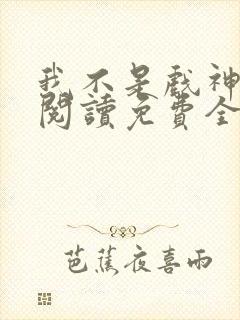 我不是戲神
閱讀免費全
芭蕉夜喜雨